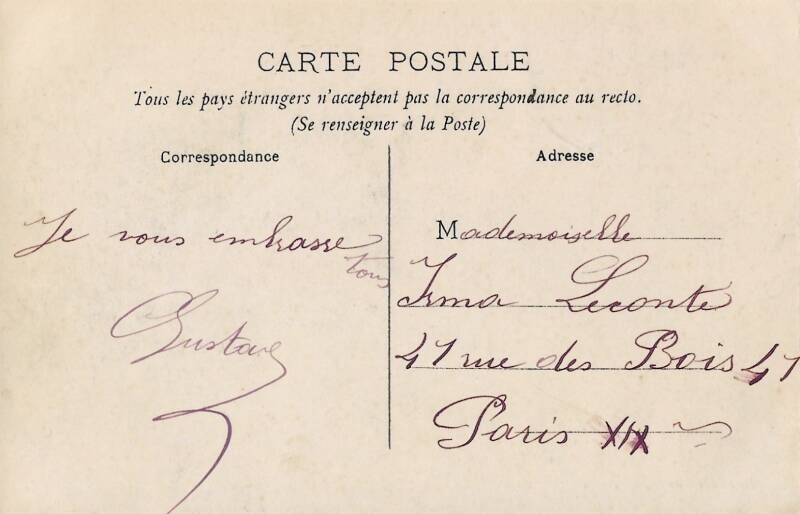 CARTE POSTALE
Tous les pays étrangers n'acceptent pas la correspondance au recto.
(Se renseigner à la Poste)
Correspondance
Je vous embrasse
tous
Gustave
Adresse
Mademoiselle
Irma Leconte
47 rue des Bois 47
Paris XIX